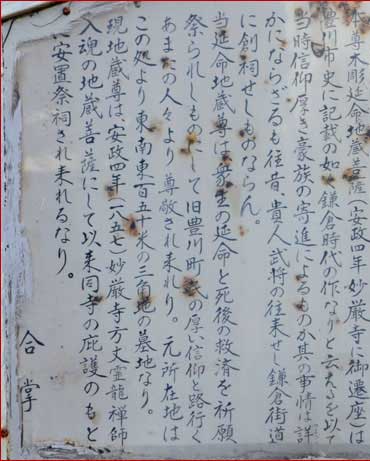 本尊木彫延命地蔵菩薩(安政四年妙厳寺に御遷座)は
豊川市史に記載の如く鎌倉時代の作なりと云えるを以て
当時信仰厚き豪族の寄進によるものか其の事情は詳
かにならざるも往昔、貴人武将の往来せし鎌倉街道
に創祠せしものならん。
当延命地蔵尊は衆生の延命と死後の救済を祈願
祭られしものにして旧豊川町 民の厚い信仰と路行く
あまたの人々より尊敬され来れり。元所在地は
この処より東南東百五十米の三角地の墓地なり。
現地蔵尊は安政四年(一八五七)妙厳寺方丈霊龍禅師
入魂の地蔵菩薩にして以来同寺の庇護のもと、
に安置祭祠され来れるなり。
合掌